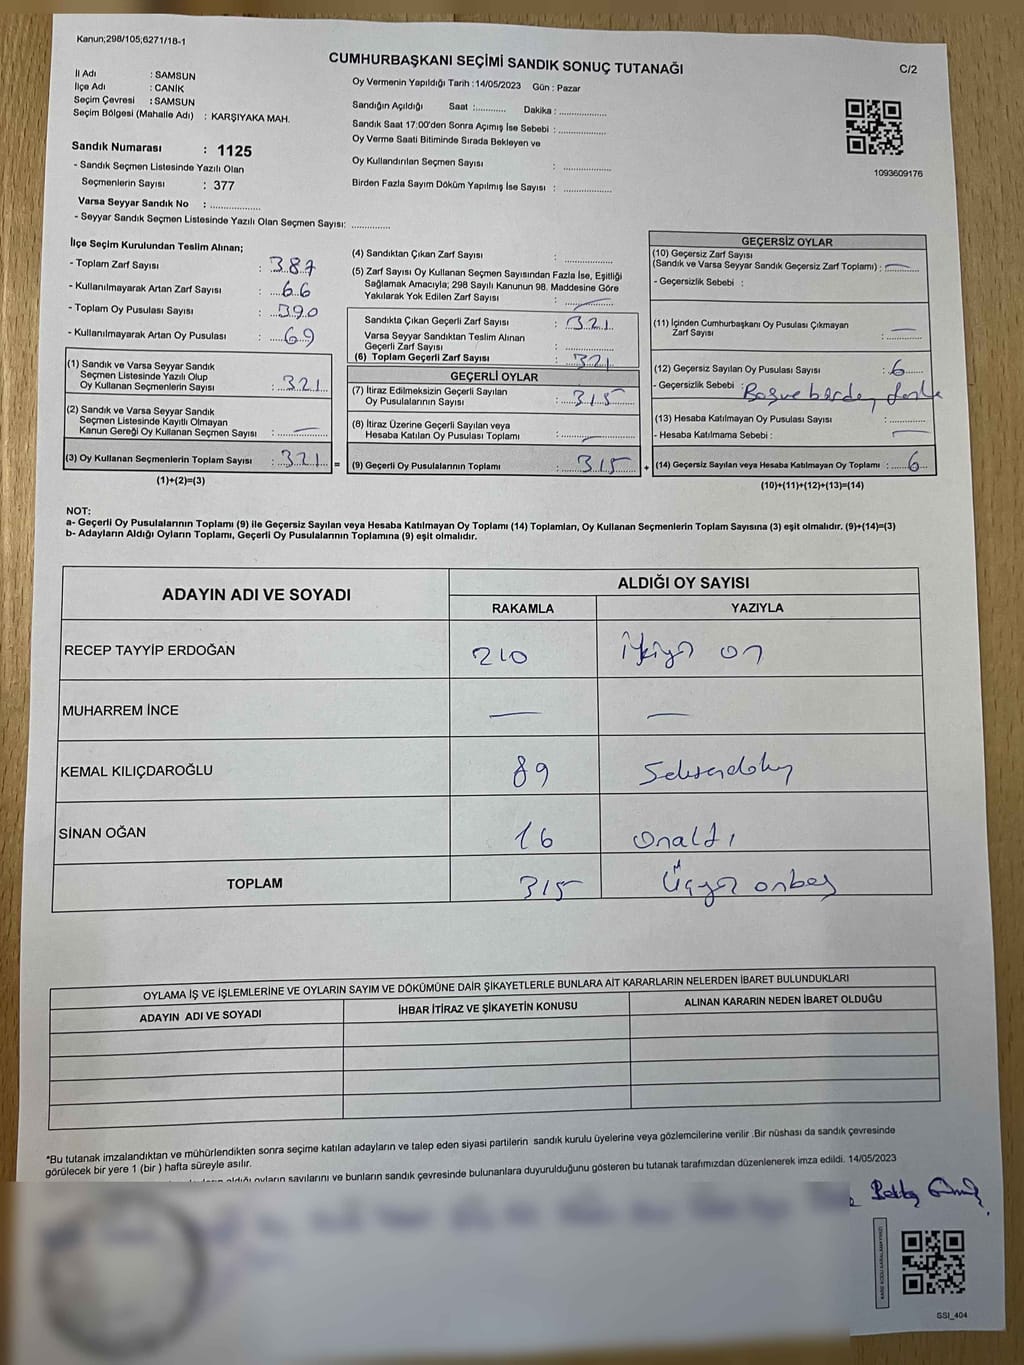 Kanun;298/105;6271/18-1
CUMHURBAŞKANI SEÇİMİ SANDIK SONUÇ TUTANAĞI
C/2
İl Adı : SAMSUN
İlçe Adı : CANİK
Seçim Çevresi : SAMSUN
Seçim Bölgesi (Mahalle Adı) : KARŞIYAKA MAH.
Sandık Numarası : 1125
- Sandık Seçmen Listesinde Yazılı Olan
Seçmenlerin Sayısı : 377
Varsa Seyyar Sandık No : ..............
- Seyyar Sandık Seçmen Listesinde Yazılı Olan Seçmen Sayısı: ..............
Oy Vermenin Yapıldığı Tarih : 14/05/2023 Gün : Pazar
Sandığın Açıldığı Saat :........... Dakika : ..............
Sandık Saat 17:00'den Sonra Açımış İse Sebebi : ..............
Oy Verme Saati Bitiminde Sırada Bekleyen ve
Oy Kullandırılan Seçmen Sayısı : ..............
Birden Fazla Sayım Döküm Yapılmış İse Sayısı : ..............
1093609176
İlçe Seçim Kurulundan Teslim Alınan;
- Toplam Zarf Sayısı : 387
- Kullanılmayarak Artan Zarf Sayısı : 66
- Toplam Oy Pusulası Sayısı : 390
- Kullanılmayarak Artan Oy Pusulası : 69
(1) Sandık ve Varsa Seyyar Sandık
Seçmen Listesinde Yazılı Olup
Oy Kullanan Seçmenlerin Sayısı : 321
(2) Sandık ve Varsa Seyyar Sandık
Seçmen Listesinde Kayıtlı Olmayan
Kanun Gereği Oy Kullanan Seçmen Sayısı : —
(3) Oy Kullanan Seçmenlerin Toplam Sayısı : 321 =
(1)+(2)=(3)
(4) Sandıktan Çıkan Zarf Sayısı : ..............
(5) Zarf Sayısı Oy Kullanan Seçmen Sayısından Fazla İse, Eşitliği
Sağlamak Amacıyla; 298 Sayılı Kanunun 98. Maddesine Göre
Yakılarak Yok Edilen Zarf Sayısı : —
Sandıkta Çıkan Geçerli Zarf Sayısı : 321
Varsa Seyyar Sandıktan Teslim Alınan
Geçerli Zarf Sayısı : ..............
(6) Toplam Geçerli Zarf Sayısı : 321
GEÇERLİ OYLAR
(7) İtiraz Edilmeksizin Geçerli Sayılan
Oy Pusulalarının Sayısı : 315
(8) İtiraz Üzerine Geçerli Sayılan veya
Hesaba Katılan Oy Pusulası Toplamı : —
(9) Geçerli Oy Pusulalarının Toplamı : 315 +
GEÇERSİZ OYLAR
(10) Geçersiz Zarf Sayısı
(Sandık ve Varsa Seyyar Sandık Geçersiz Zarf Toplamı) : —
- Geçersizlik Sebebi :
(11) İçinden Cumhurbaşkanı Oy Pusulası Çıkmayan
Zarf Sayısı : —
(12) Geçersiz Sayılan Oy Pusulası Sayısı : 6
- Geçersizlik Sebebi : Boş ve birden fazla
(13) Hesaba Katılmayan Oy Pusulası Sayısı : ..............
- Hesaba Katılmama Sebebi : —
(14) Geçersiz Sayılan veya Hesaba Katılmayan Oy Toplamı : 6
(10)+(11)+(12)+(13)=(14)
NOT:
a- Geçerli Oy Pusulalarının Toplamı (9) ile Geçersiz Sayılan veya Hesaba Katılmayan Oy Toplamı (14) Toplamları, Oy Kullanan Seçmenlerin Toplam Sayısına (3) eşit olmalıdır. (9)+(14)=(3)
b- Adayların Aldığı Oyların Toplamı, Geçerli Oy Pusulalarının Toplamına (9) eşit olmalıdır.
ADAYIN ADI VE SOYADI
ALDIĞI OY SAYISI
RAKAMLA YAZIYLA
RECEP TAYYİP ERDOĞAN 210 ikiyüz on
MUHARREM İNCE — —
KEMAL KILIÇDAROĞLU 89 Seksendokuz
SİNAN OĞAN 16 Onaltı
TOPLAM 315 Üçyüz onbeş
OYLAMA İŞ VE İŞLEMLERİNE VE OYLARIN SAYIM VE DÖKÜMÜNE DAİR ŞİKAYETLERLE BUNLARA AİT KARARLARIN NELERDEN İBARET BULUNDUKLARI
ADAYIN ADI VE SOYADI İHBAR İTİRAZ VE ŞİKAYETİN KONUSU ALINAN KARARIN NEDEN İBARET OLDUĞU
*Bu tutanak imzalandıktan ve mühürlendikten sonra seçime katılan adayların ve talep eden siyasi partilerin sandık kurulu üyelerine veya gözlemcilerine verilir .Bir nüshası da sandık çevresinde
görülecek bir yere 1 (bir ) hafta süreyle asılır.
aldığı oyların sayılarını ve bunların sandık çevresinde bulunanlara duyurulduğunu gösteren bu tutanak tarafımızdan düzenlenerek imza edildi. 14/05/2023
SSI_404